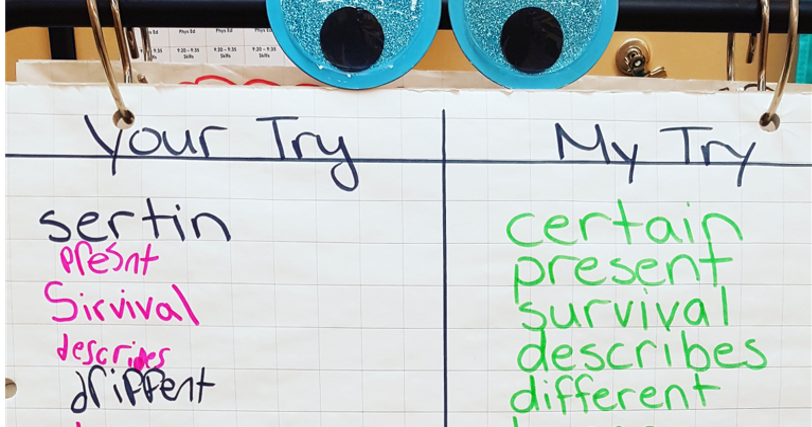 Phys Ed Phys Ed Phys Ed
9:20 - 9:35 9:20 - 9:35 9:20 - 9:35
Skills Skills Skills
Your Try My Try
sertin certain
present present
Sirvival survival
describes
different